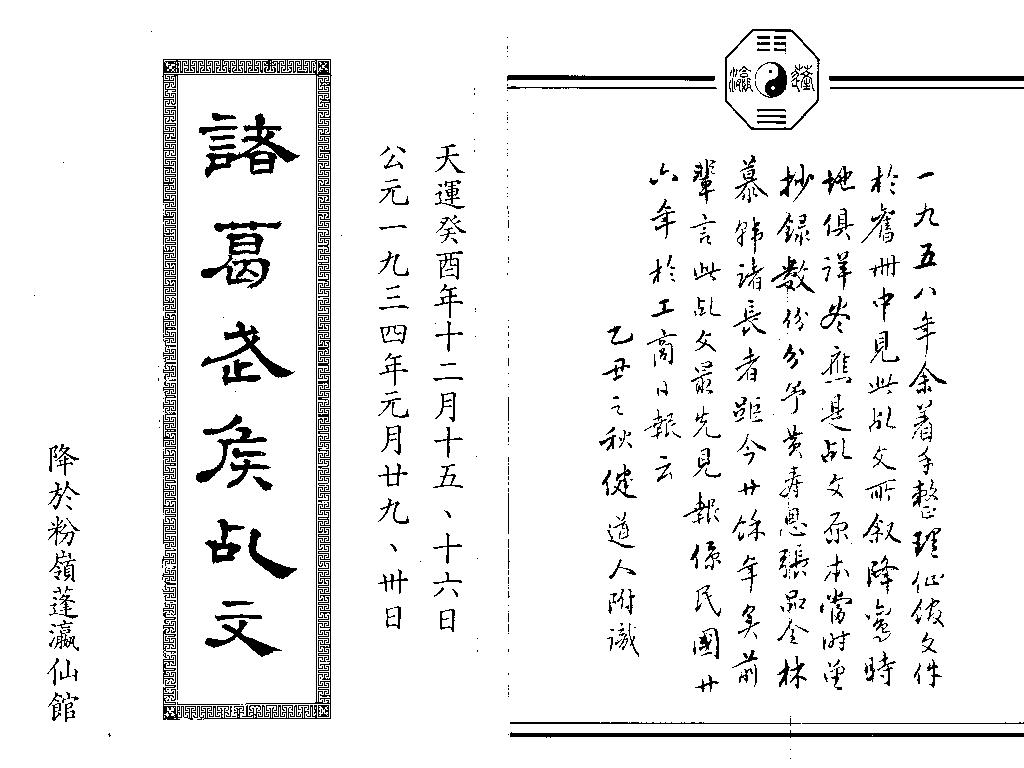 蓬瀛
一九五八年余着手整理仙館文件
於舊冊中見此乩文所叙降鸞時
地俱詳盡應是乩文原本當時曾
抄錄數份分予黃壽恩張品全林
慕韓諸長者距今廿餘年矣前
輩言此乩文最先見報係民國廿
六年於工商日報云
乙丑之秋健道人附識
天運癸酉年十二月十五、十六日
公元一九三四年元月廿九、卅日
諸葛武侯乩文
降於粉嶺蓬瀛仙館